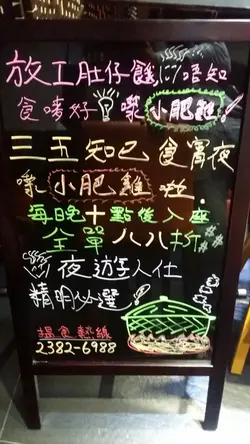 放工肚仔餓 唔知
食嘜好 嚟 小肥雞!
三五知己 食宵夜
嚟 小肥雞 啦
每晚十點後入座
全單八八折
夜遊人仕
精明必選!
搵食熱線
2382-6988